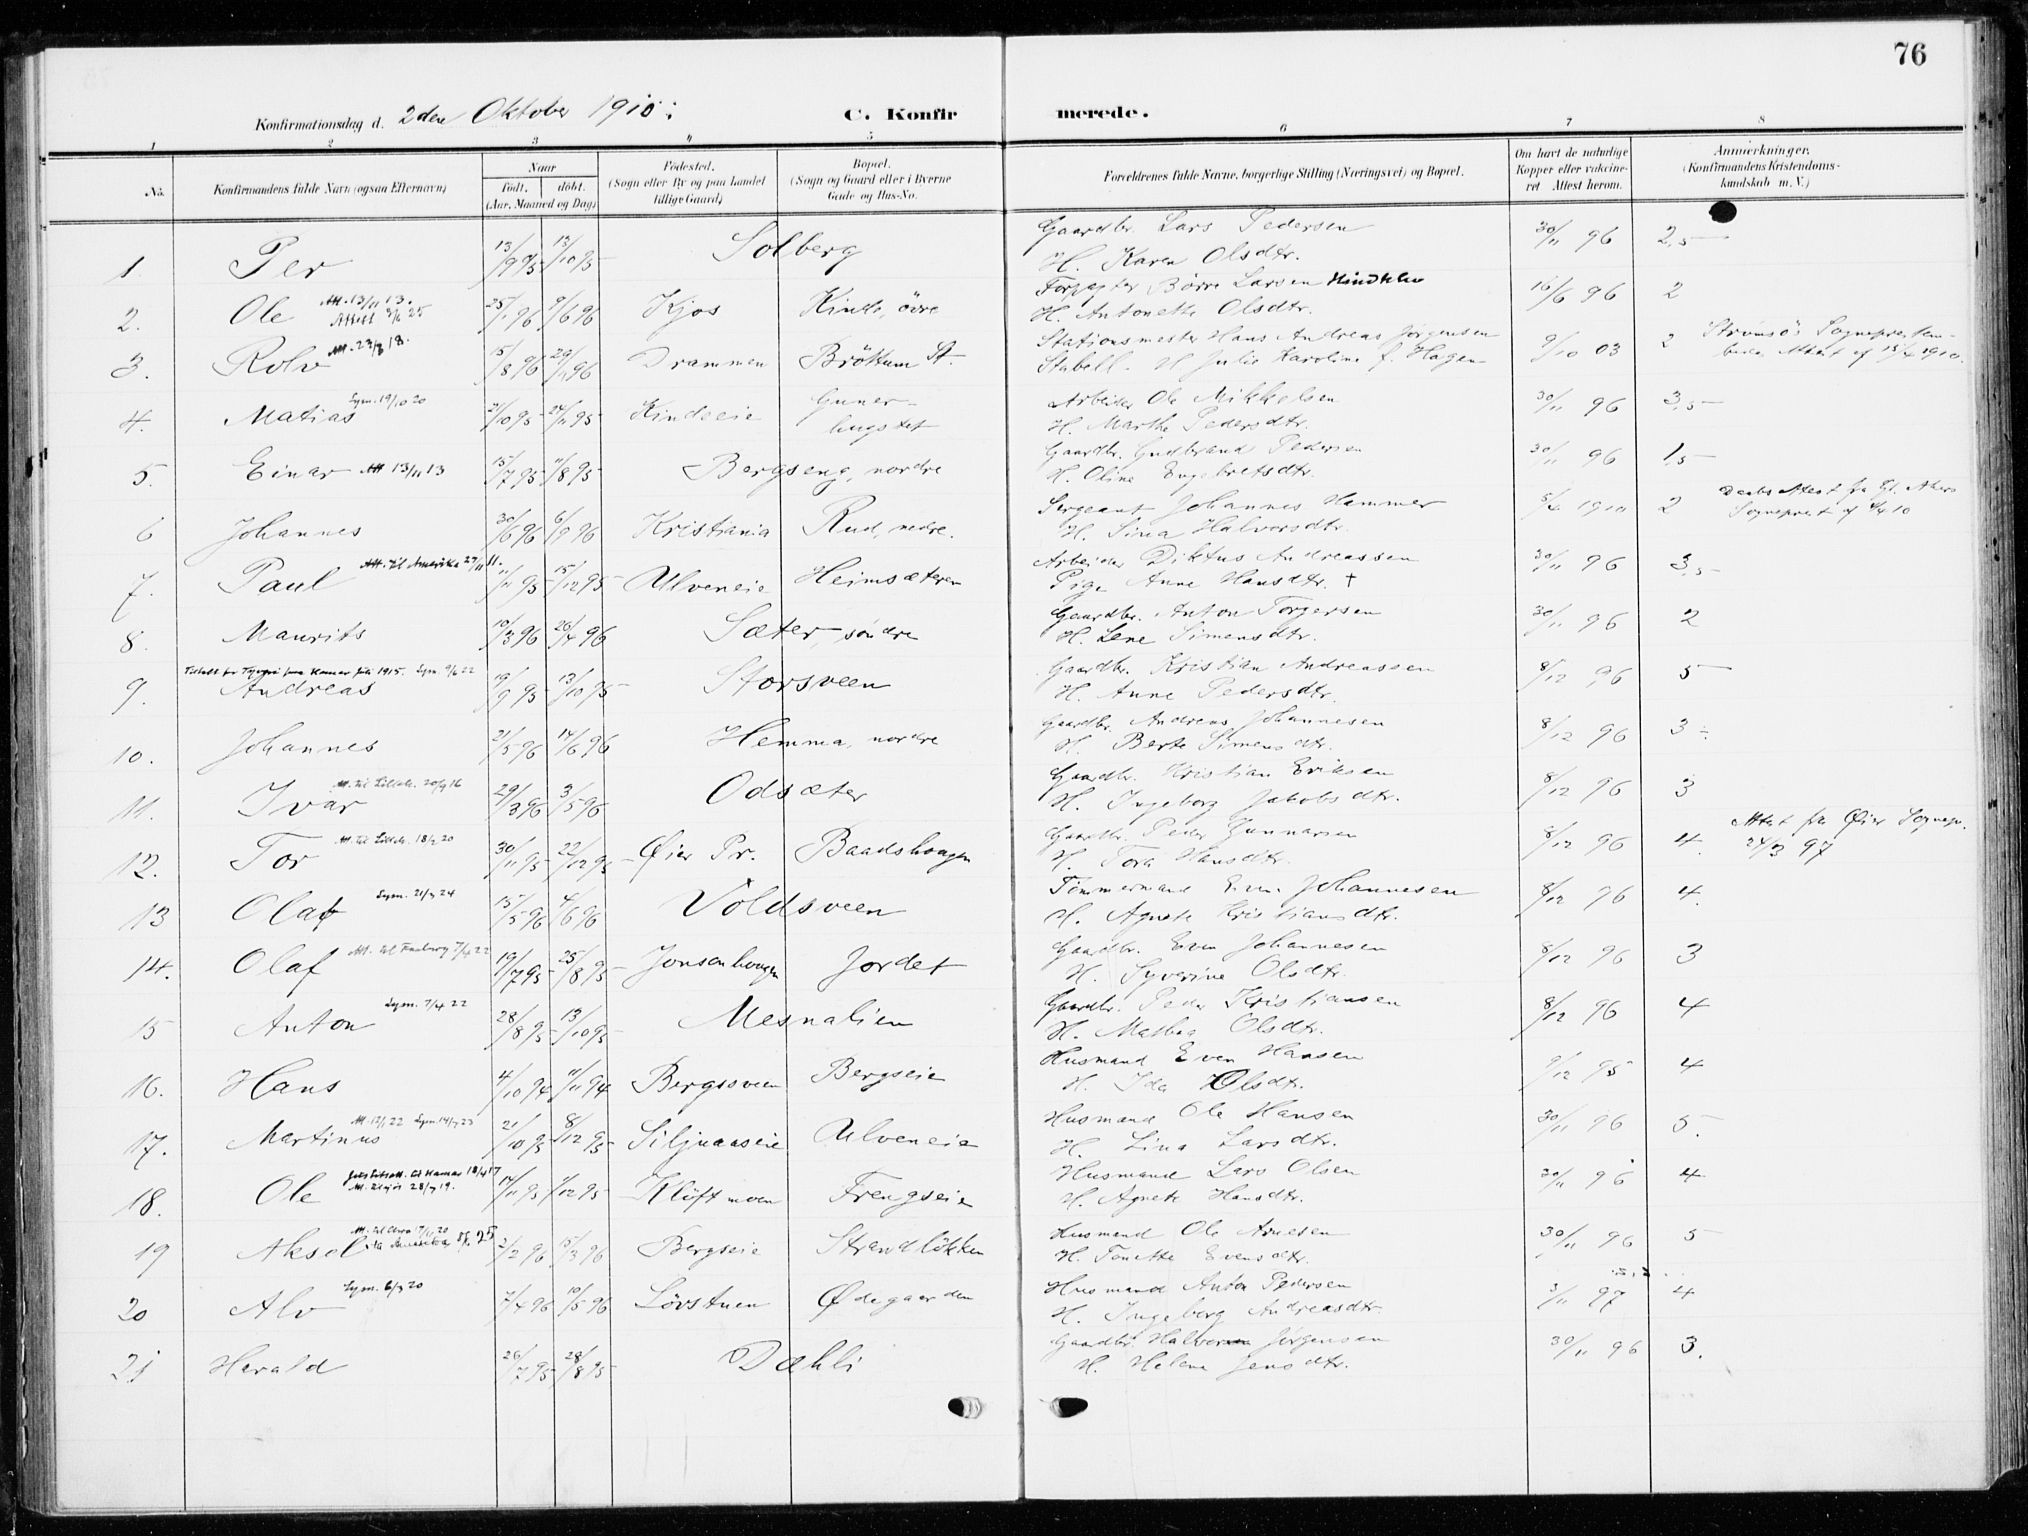 76
Konfirmationsdag d. 2den Oktober 1910.
C. Konfirmerede.
1 2 3 4 5 6 7 8
No.
Konfirmandens fulde Navn (ogsaa Efternavn)
Naar
født. døbt.
(Aar, Maaned og Dag)
Fødested.
(Sogn eller By og paa Landet
tillige Gaard)
Bopæl.
(Sogn og Gaard eller i Byerne
Gade og Hus-No.
Forældrenes fulde Navne, borgerlige Stilling (Næringsvei) og Bopæl.
Om havt de naturlige
Kopper eller vakcine-
ret Attest herom.
Anmerkninger.
(Konfirmandens Kristendoms-
kundskab m. V.)
1. Per 13/9 95 13/10 95 Solberg Gaardbr. Lars Pedersen 30/11 96 2,5
H. Karen Olsdtr.
Att. 13/11 13.
2. Ole 25/1 96 9/6 96 Kjos Kinds, övre Forpagter Börre Larsen Kindshlw 16/6 96 2
Attest 3/6 25
H. Antonette Olsdtr.
3. Rolv Att. 23/8 18. 15/8 96 29/11 96 Drammen Bröttum St. Stationsmester Hans Andreas Jörgensen 9/10 03 2 Strömsö Sogneprestem-
Stabell. H Julie Karoline f. Hagen bedes Attest af 15/4 1910.
Lysn. 19/10 20
4. Matias 21/10 95 24/11 95 Kindseie Guner- Arbeider Ole Mikkelsen 30/11 96 3,5
hugstet H. Marthe Pedersdtr.
5. Einar Att 13/11 13 15/7 95 11/8 95 Bergseng, nordre Gaardbr. Gudbrand Pedersen 30/11 96 1,5
H. Oline Engebretsdtr.
6 Johannes 30/6 96 6/9 96 Kristiania Rud, nedre. Sergeant Johannes Hammer 5/4 1910 2 Daabsattest fra Gl. Akers
H. Sina Halvorsdtr. Sogneprest af 4/4 10
Att. til Amerika 27/11 11.
7. Paul 11/11 95 15/12 95 Ulveneie Heimsæteren Arbeider Diktus Andreassen 30/11 96 3,5
Pige Anne Hansdtr. †
8. Maurits 10/3 96 26/4 96 Sæter, söndre Gaardbr. Anton Torgersen 30/11 96 2
H. Lene Simensdtr.
Tiltalt for Tyveri paa Hamar juli 1915. Lysn. 9/6 22
9. Andreas 19/9 95 13/10 95 Storsveen Gaardbr. Kristian Andreassen 8/12 96 5
H. Anne Pedersdtr.
10. Johannes 21/5 96 14/6 96 Hemma, nordre Gaardbr. Andreas Johannesen 8/12 96 3÷
H. Berte Simensdtr.
Att. til Lilleh. 20/9 16
11. Ivar 29/3 96 3/5 96 Odsæter Gaardbr. Kristian Eriksen 8/12 96 3
H. Ingeborg Jakobsdtr.
Att. til Lilleh. 18/2 20
12. Tor 30/11 95 22/12 95 Øier Pr. Baadshaugen Gaardbr. Peder Gunnarsen 8/12 96 4. Attest fra Øier Sognepr.
H. Tora Hansdtr. 24/3 97
Lysn. 21/3 24
13 Olaf 15/5 96 4/6 96 Voldsveen Tömmermand Even Johannesen 8/12 96 4.
H. Agnete Kristiansdtr.
Att. til Faaberg 7/4 22
14. Olaf 19/7 95 25/8 95 Jonsenhaugen Jordet Gaardbr. Even Johannesen 8/12 96 3
H. Syverine Olsdtr.
Lysn. 7/4 22
15 Anton 28/8 95 13/10 95 Mesnalien Gaardbr. Peder Kristiansen 8/12 96 4
H. Mathea Olsdtr.
16. Hans 4/10 94 11/11 94 Bergssveen Bergseie Husmand Even Hansen 9/12 95 4
H. Ida Olsdtr.
Att. 12/1 22 Lysn. 14/7 23
17. Martinus 21/10 95 8/12 95 Siljuaaseie Ulveneie Husmand Ole Hansen 30/11 96 5.
H. Lina Larsdtr.
til Hamar 18/4 17
18. Ole 28/9 19. 17/11 95 1/12 95 Klöftmoen Frengseie Husmand Lars Olsen 30/11 96 4
H. Agnete Hansdtr.
19 Aksel til Amerika 25 2/2 96 15/3 96 Bergseie Strandlökken Husmand Ole Arnesen 30/11 96 5
H. Tonette Evensdtr.
Lysn. 6/3 20
20 Alv 7/4 96 10/5 96 Lövstuen Ødegaarden Husmand Anton Pedersen 3/11 97 4
H. Ingeborg Andreasdtr.
21 Harald 26/7 95 28/8 95 Dæhli Gaardbr. Halvor Jörgensen 30/11 96 3.
H. Helene Jensdtr.